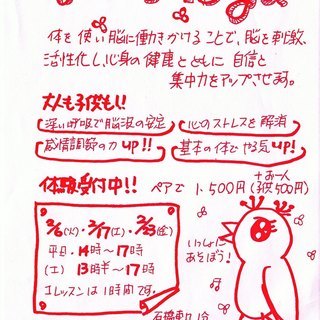 体を使い脳に働きかけることで、脳を刺激、
活性化し、心身の健康とともに自信と
集中力をアップさせます。
大人も子供も!!
深い呼吸で脳波の安定
心のストレスを解消
感情調節の力up!!
基本の体でやる気up!
体験受付中!!
ペアで1.500円(+お一人子供500円)
2/6(火)・2/17(土)・2/23(金)
平日・14時〜17時
(土)13時半〜17時
1レッスンは1時間です。
いっしょにあそぼう!